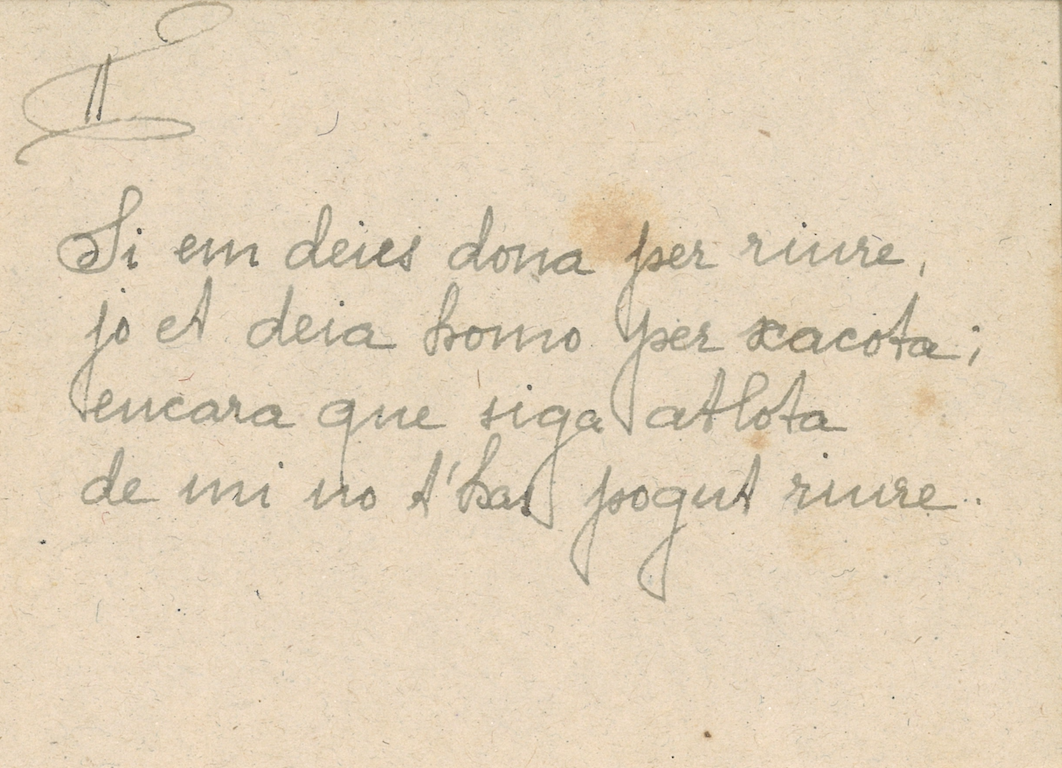 II
Si em deies dona per riure,
jo et deia homo per xacota;
encara que siga atlota
de mi no t'has pogut riure..